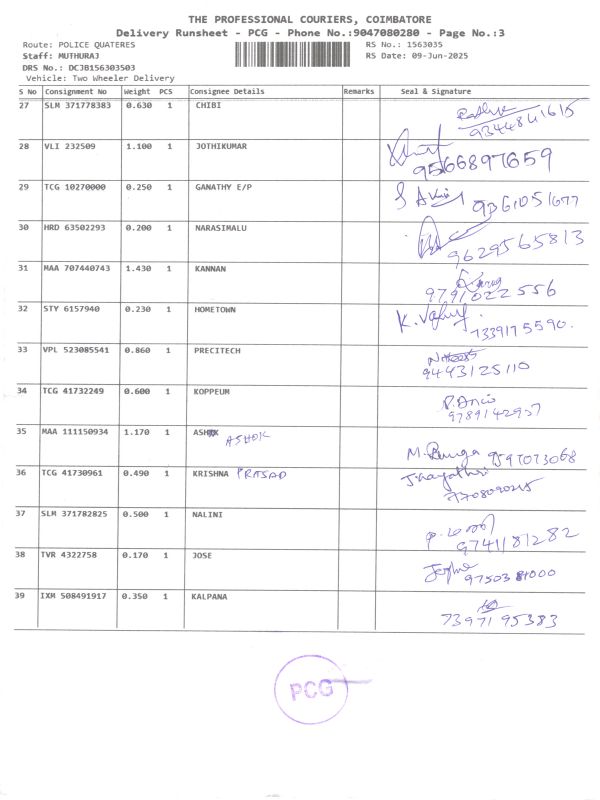 THE PROFESSIONAL COURIERS, COIMBATORE
Delivery Runsheet - PCG - Phone No.:9047080280 - Page No.:3
Route: POLICE QUATERES RS No.: 1563035
Staff: MUTHURAJ RS Date: 09-Jun-2025
DRS No.: DCJB156303503
Vehicle: Two Wheeler Delivery
S No Consignment No Weight PCS Consignee Details Remarks Seal & Signature
27 SLM 371778383 0.630 1 CHIBI
9344841615
28 VLI 232509 1.100 1 JOTHIKUMAR
9566897659
29 TCG 10270000 0.250 1 GANATHY E/P
9361051677
30 HRD 63502293 0.200 1 NARASIMALU
9629565813
31 MAA 707440743 1.430 1 KANNAN
9791022556
32 STY 6157940 0.230 1 HOMETOWN
K.
7339175590.
33 VPL 523085541 0.860 1 PRECITECH
9443125110
34 TCG 41732249 0.600 1 KOPPEUM
35 MAA 111150934 1.170 1 ASHOK
M. 9597073068
36 TCG 41730961 0.490 1 KRISHNA PRASAD
37 SLM 371782825 0.500 1 NALINI
9741181282
38 TVR 4322758 0.170 1 JOSE
9750381000
39 IXM 508491917 0.350 1 KALPANA
7397195383
PCG